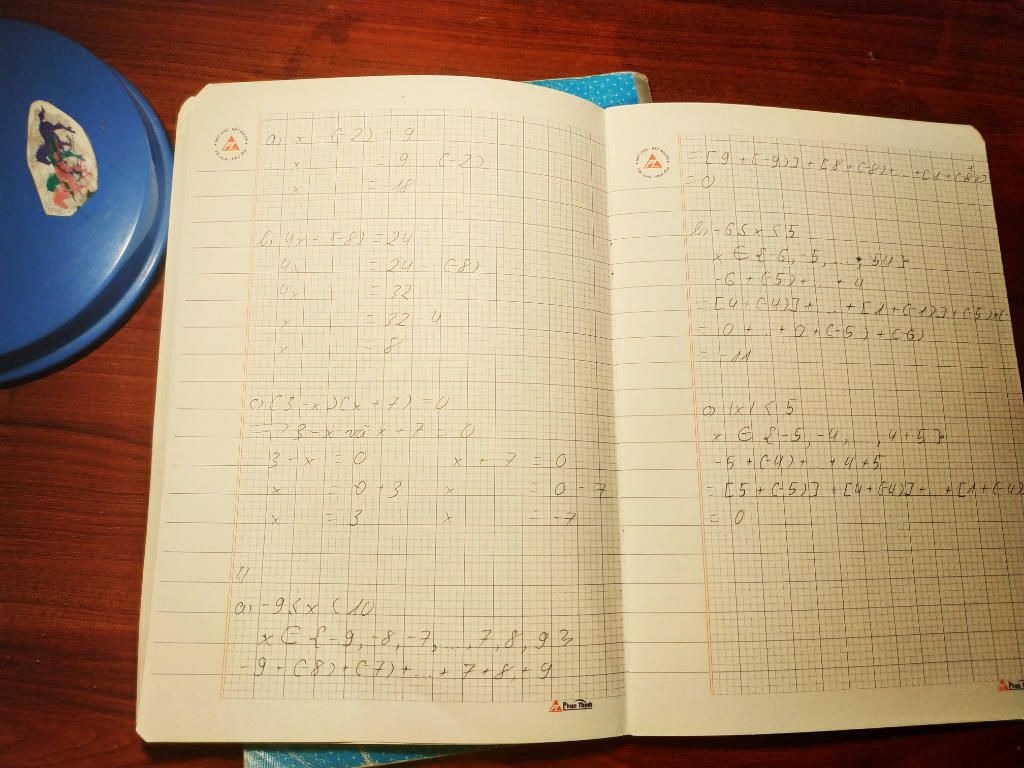 a) x : (-2) = 9
x = 9 . (-2)
x = 18
b) 4x + (-8) = 24
4x = 24 - (-8)
4x = 32
x = 32 : 4
x = 8
c) (3 - x)(x + 7) = 0
=> 3 - x và x + 7 = 0
3 - x = 0 x + 7 = 0
x = 0 + 3 x = 0 - 7
x = 3 x = -7
4
a) -9 ≤ x < 10
x ∈ {-9, -8, -7, ..., 7, 8, 9}
-9 + (-8) + (-7) + ... + 7 + 8 + 9
Phan Thành
= [9 + (-9)] + [8 + (-8)] + ... + [1 + (-8)]
= 0
b) -6 ≤ x < 5
x ∈ {-6, -5, ..., 4}
-6 + (-5) + ... + 4
= [4 + (-4)] + ... + [1 + (-1)] + (-5) + (-
= 0 + ... + 0 + (-5) + (-6)
= -11
c) |x| < 5
x ∈ {-5, -4, ..., 4 + 5}
-5 + (-4) + ... + 4 + 5
= [5 + (-5)] + [4 + (-4)] + ... + [1 + (-4)]
= 0
Phan Th